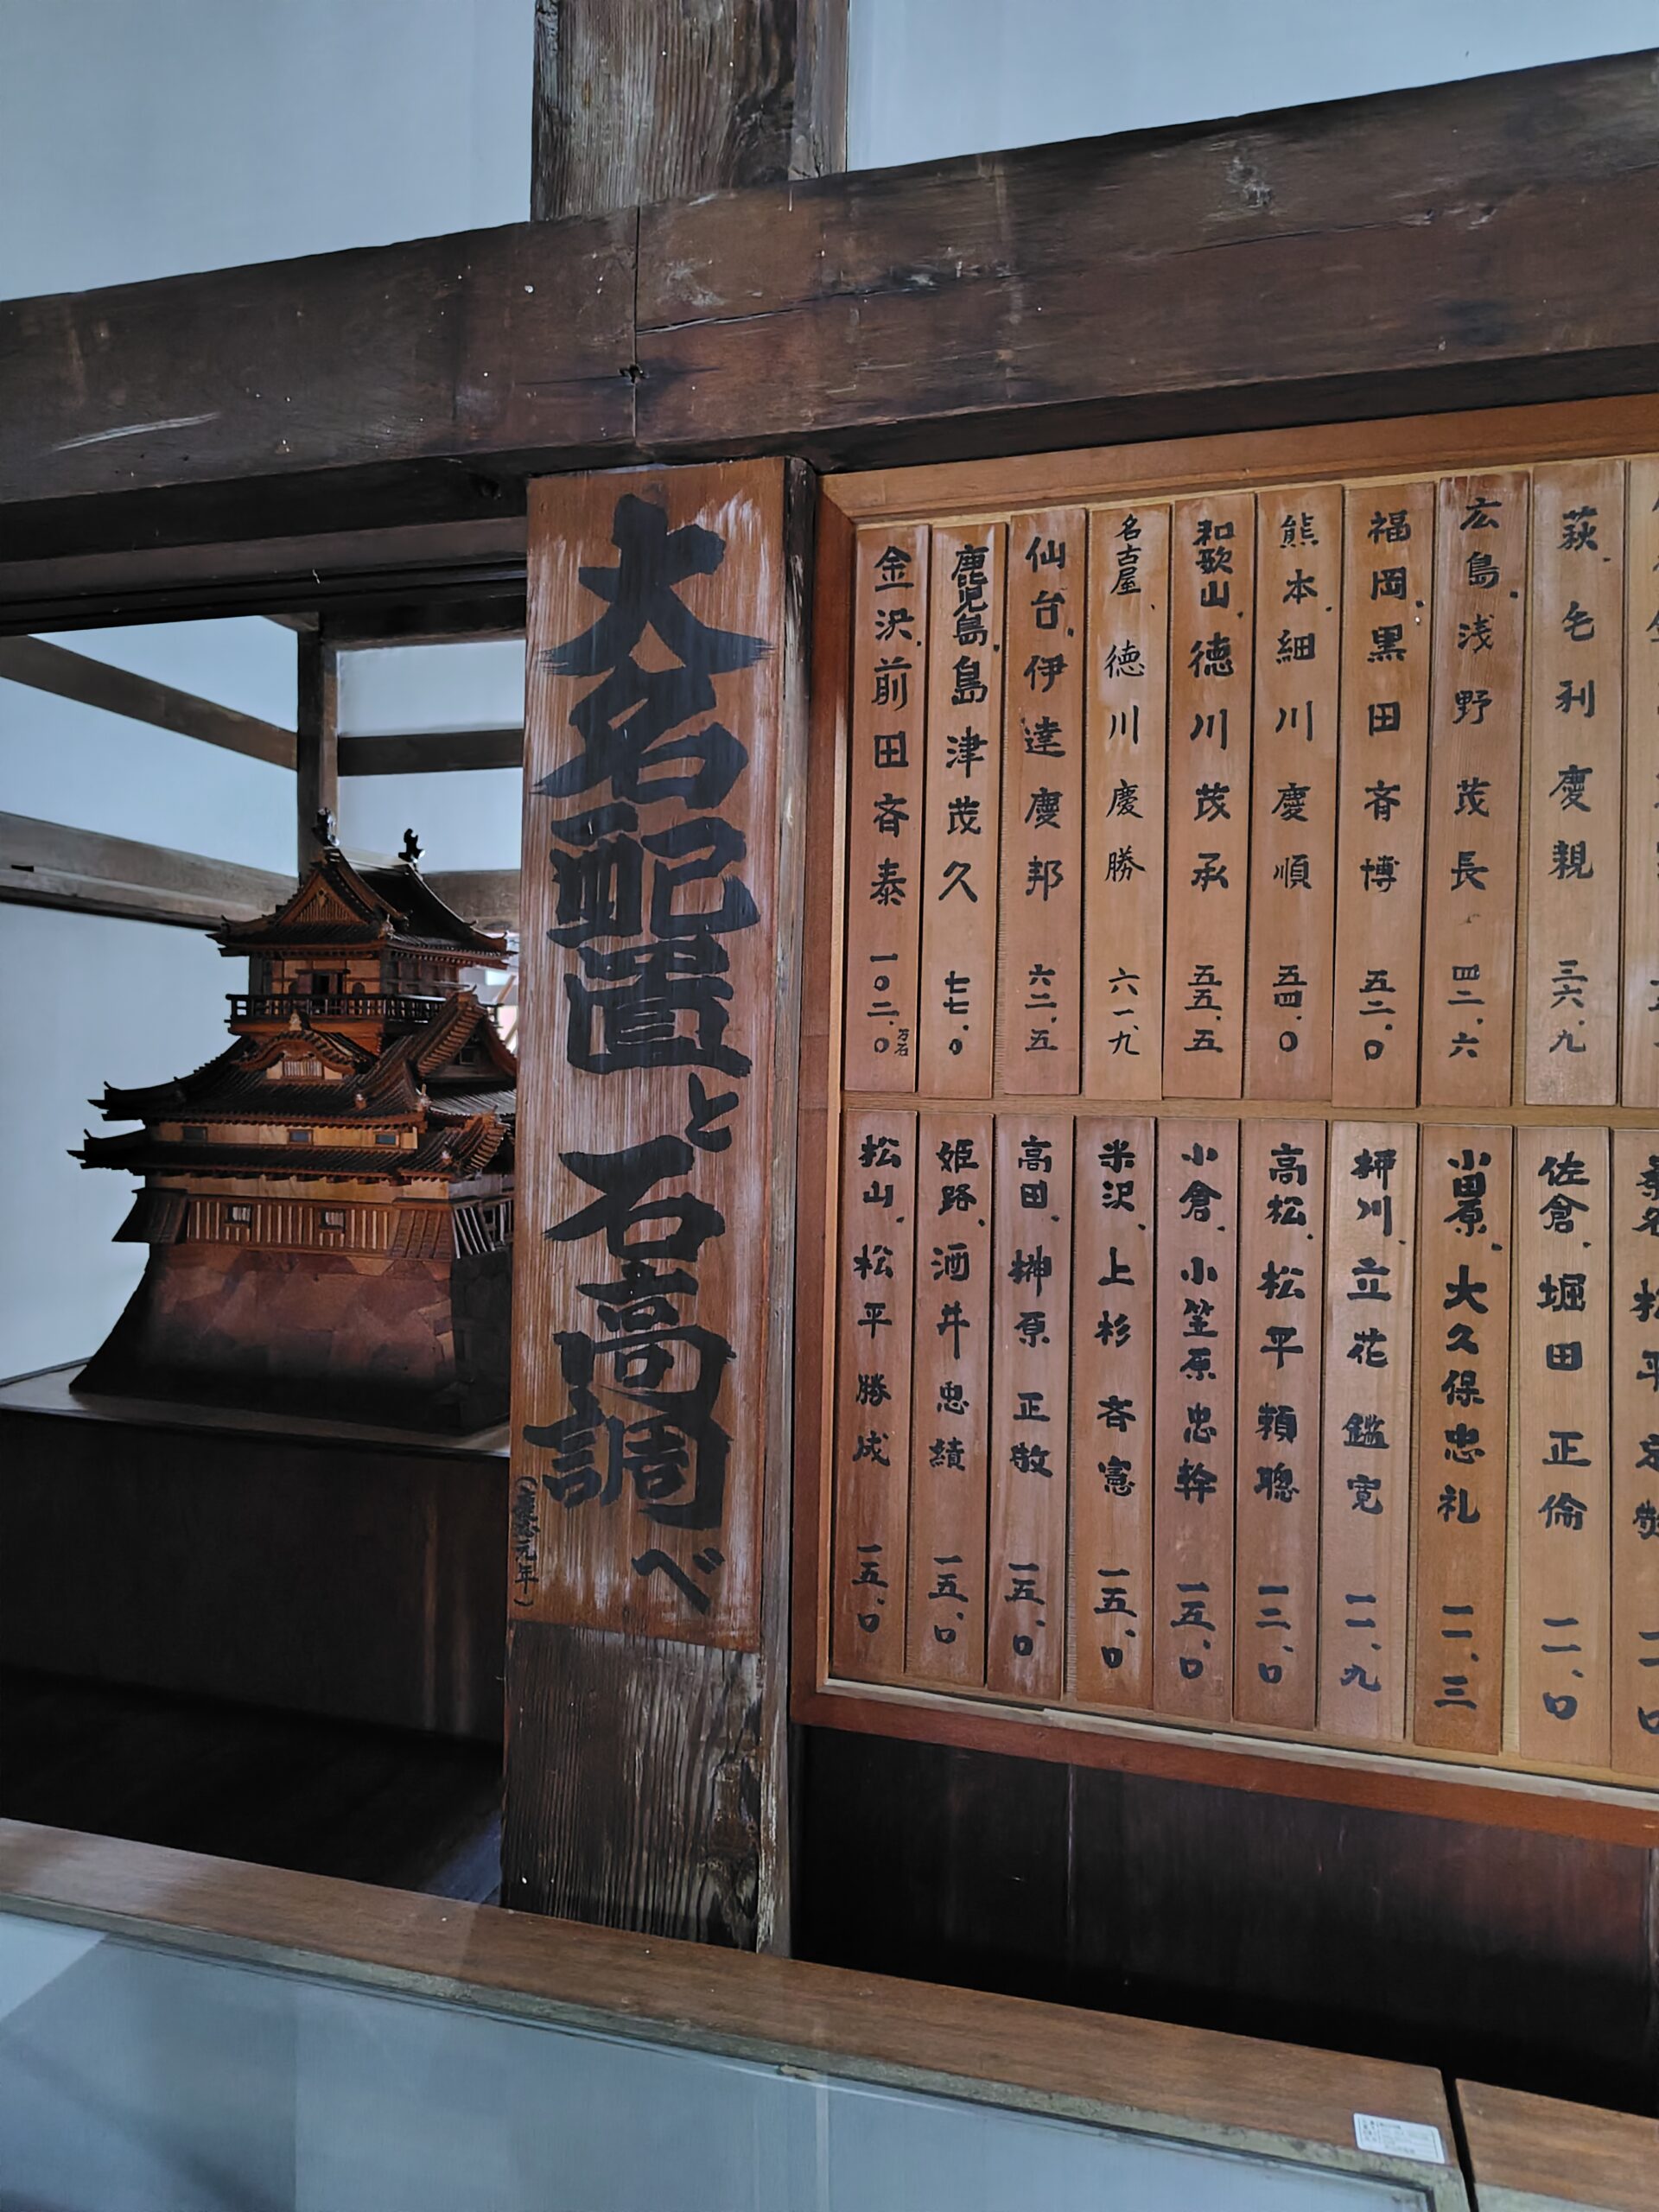 大名配置と石高調べ
(慶応元年)
金沢、前田斉泰 一〇二.〇万石
鹿児島、島津茂久 七七.〇
仙台、伊達慶邦 六二.五
名古屋、徳川慶勝 六一.九
和歌山、徳川茂承 五五.五
熊本、細川慶順 五四.〇
福岡、黒田斉博 五二.〇
広島、浅野茂長 四二.六
萩、毛利慶親 三六.九
松山、松平勝成 一五.〇
姫路、酒井忠績 一五.〇
高田、榊原正敬 一五.〇
米沢、上杉斉憲 一五.〇
小倉、小笠原忠幹 一五.〇
高松、松平頼聰 一二.〇
柳川、立花鑑寛 一一.九
小田原、大久保忠礼 一一.三
佐倉、堀田正倫 一一.〇